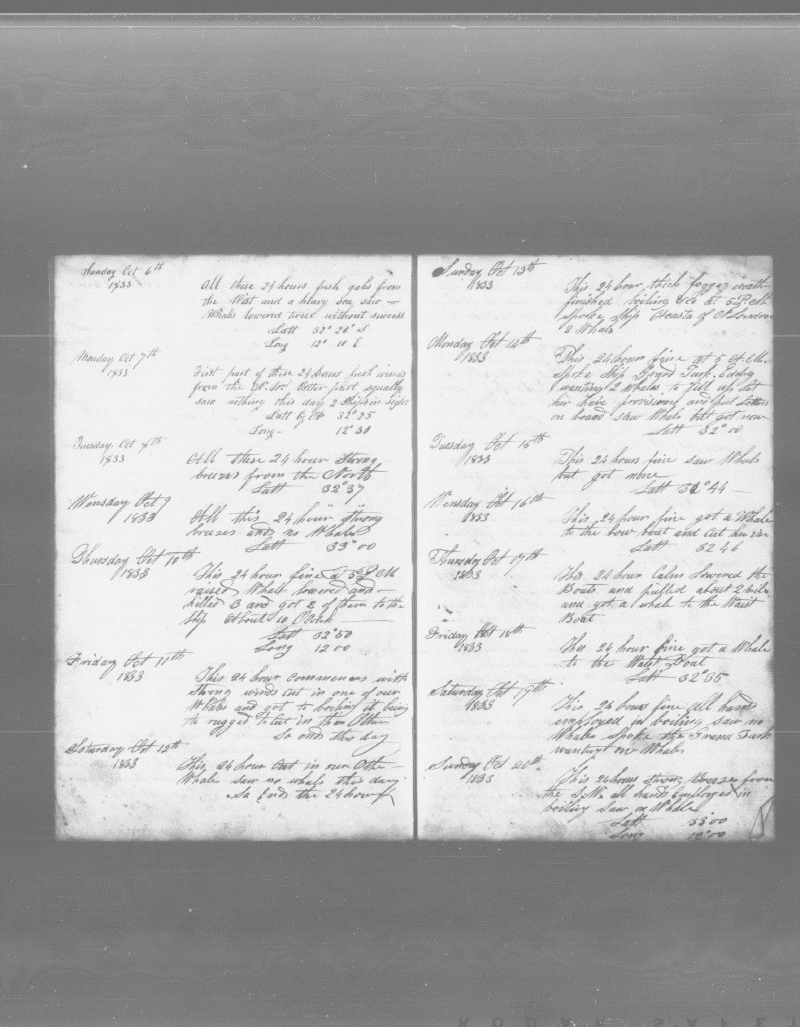 Sunday Oct 6th
1833
All these 24 hours fresh gales from
the West and a heavy sea saw
Whales lowered twice without success
Latt 32° 20' S
Long 12° 10 E
Monday Oct 7th
1833
First part of these 24 hours fresh winds
from the W.N.W. Latter part squally
saw nothing this day 2 Ships in Sight
Latt by 32° 25
Long - 12° 30
Tuesday Oct 8th
1833
All these 24 hour strong
breezes from the North
Latt 32° 37
Wensday Oct 9
1833
All this 24 hour strong
breezes and no Whales
Latt 33° 00
Thursday Oct 10th
1833
This 24 hour fine at 3 P.M
raised Whales lowered and
killed 3 and got 2 of them to the
Ship about 10 Oclock
Latt 32° 50
Long 12 00
Friday Oct 11th
1833
This 24 hour commences with
strong winds cut in one of our
Whales and got to boiling it being
to rugged to cut in the Other
So ends this day
Saturday Oct 12th
1833
This 24 hour cut in our Other
Whale saw no whale this day
So Ends the 24 hours
Sunday Oct 13th
1833
This 24 hour thick foggy weather
finished boiling &c at 5 P.M
Spoke Ship of N London
2 Whales
Monday Oct 14th
1833
This 24 hours fine at 5 P.M.
Spoke Ship Grand Turk
wanting 2 Whales to fill up let
her have provisions and put letters
on board saw Whales but got none
Latt 32° 00
Tuesday Oct 15th
1833
This 24 hours fine saw Whales
but got none
Latt 32° 44
Wensday Oct 16th
1833
This 24 hour fine got a Whale
to the bow boat and cut her in
Latt 32 46
Thursday Oct 17th
1833
This 24 hour Calm lowered the
Boats and pulled about 2 hours
and got a whale to the Waist
Boat
Friday Oct 18th
1833
This 24 hour fine got a Whale
to the Waist Boat
Latt 32° 55
Saturday Oct 19th
1833
This 24 hours fine all hands
employed in boiling saw no
Whales spoke the Grand Turk
wanting no Whales
Sunday Oct 20th
1833
This 24 hours strong breezes from
the S.W. all hands employed in
boiling saw no Whales
Latt 33° 00
Long 12° 00